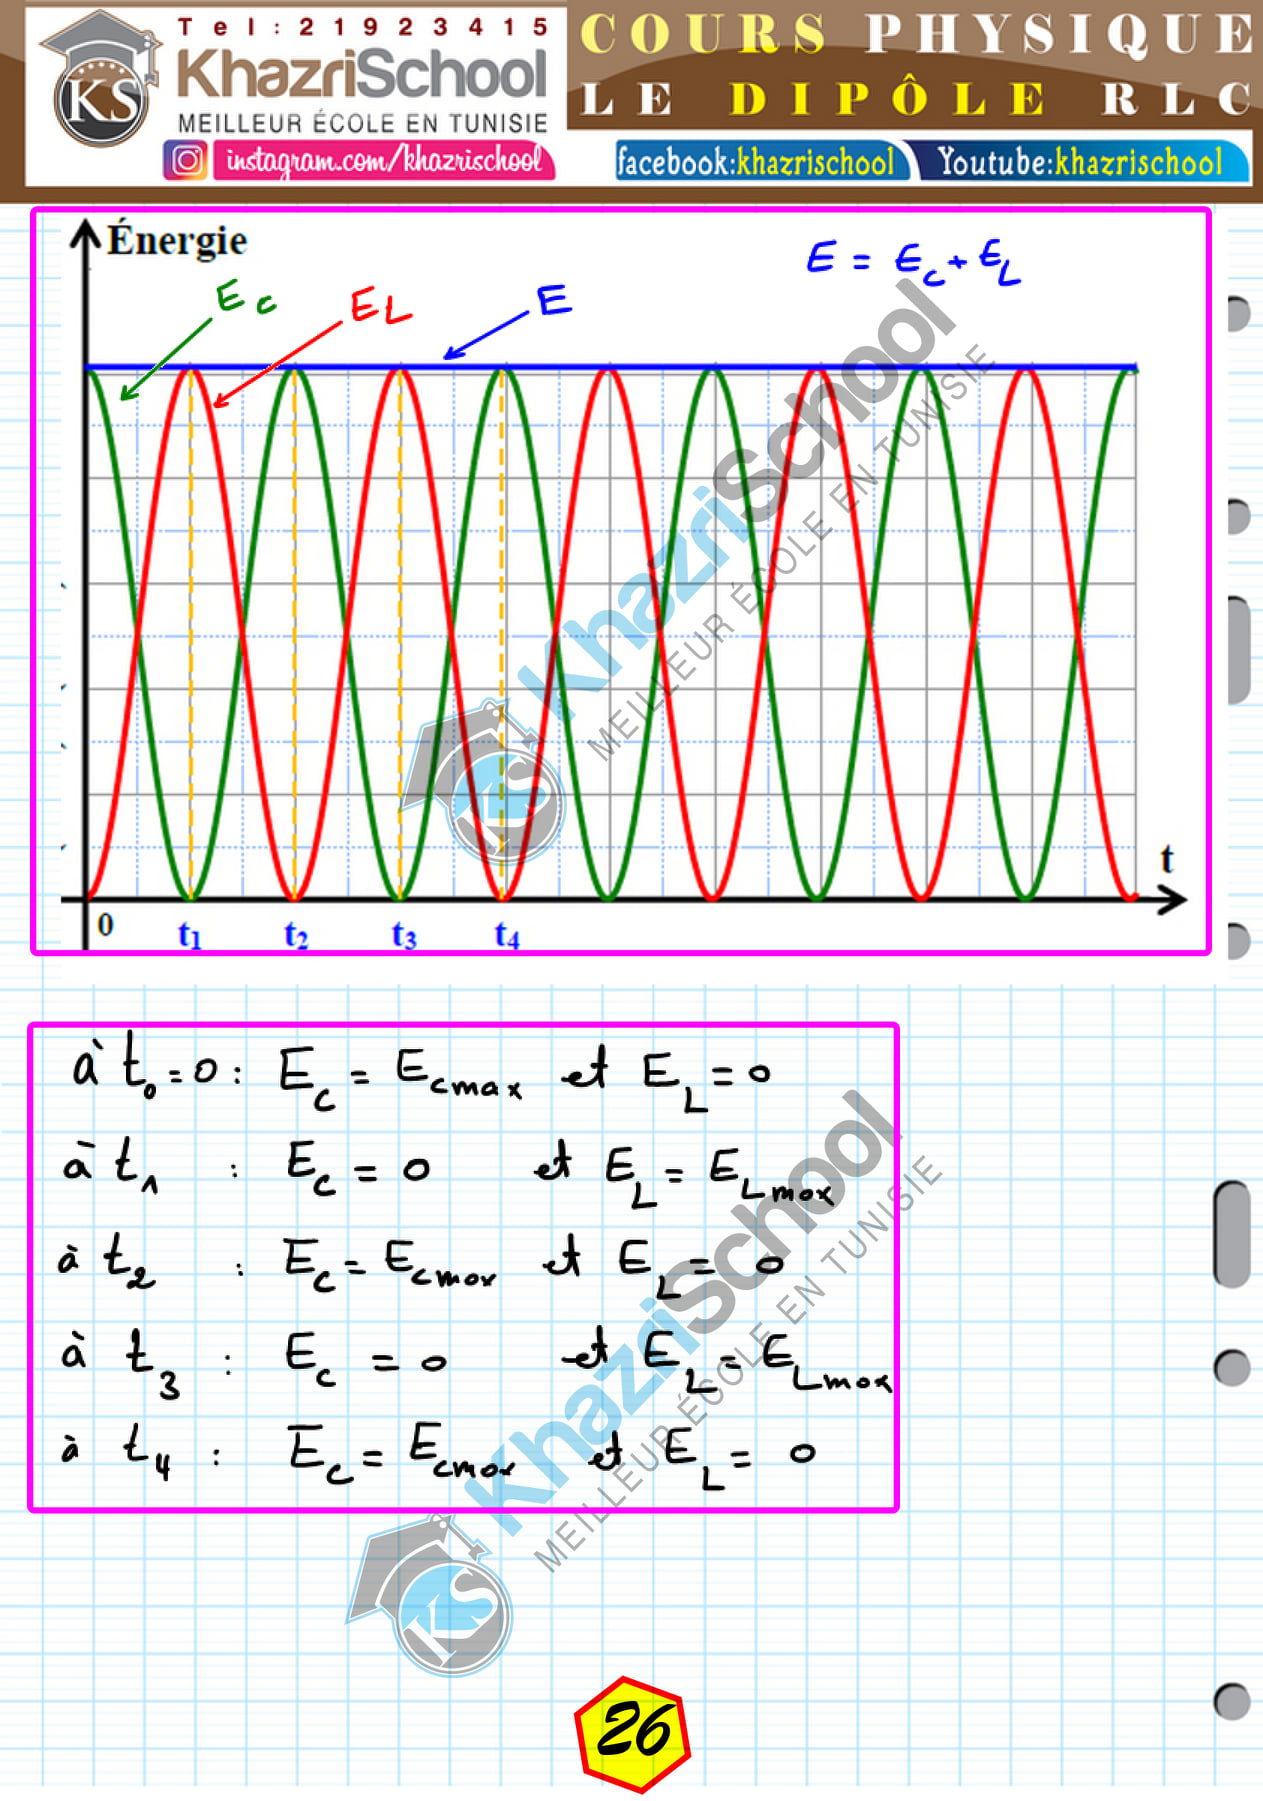 Tel:21923415
KhazriSchool
MEILLEUR ÉCOLE EN TUNISIE
instagram.com/khazrischool
COURS PHYSIQUE
LE DIPÔLE RLC
facebook:khazrischool
Youtube:khazrischool
KS
Énergie
E = Ec + EL
Ec
EL
E
t
0
t1 t2 t3 t4
KhazriSchool
MEILLEUR ÉCOLE EN TUNISIE
KS
à t0 = 0 : Ec = Ecmax et EL = 0
à t1 : Ec = 0 et EL = ELmax
à t2 : Ec = Ecmax et EL = 0
à t3 : Ec = 0 et EL = ELmax
à t4 : Ec = Ecmax et EL = 0
KhazriSchool
MEILLEUR ÉCOLE EN TUNISIE
KS
26